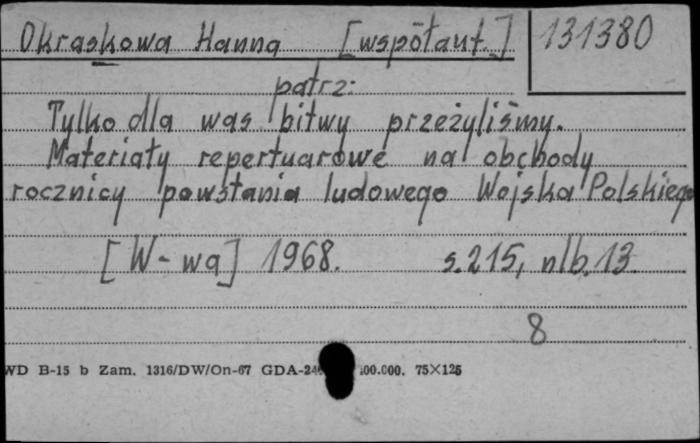 Okraskowa Hanna [współaut.] 131380
patrz:
Tylko dla was bitwy przeżyliśmy.
Materiały repertuarowe na obchody
rocznicy powstania ludowego Wojska Polskiego
[W-wa] 1968. s.215, nlb.13.
8
WD B-15 b Zam. 1316/DW/On-67 GDA- 75×125